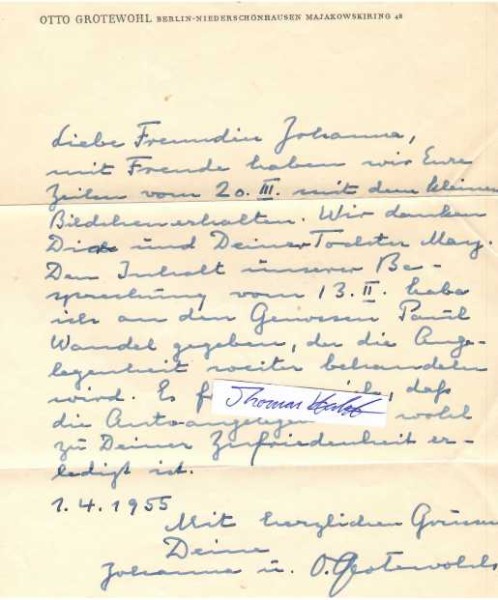 OTTO GROTEWOHL BERLIN-NIEDERSCHÖNHAUSEN MAJAKOWSKIRING 48
Liebe Freundin Johanna,
mit Freude haben wir Eure
Zeilen vom 20. III. mit dem kleinen
Bildchen erhalten. Wir danken
Dir und Deiner Tochter Mary.
Den Inhalt unserer Be-
sprechung vom 13. II. habe
ich an den Genossen Paul
Wandel gegeben, der die Ange-
legenheit weiter behandeln
wird. Es f daß
die Autoangelegen wohl
zu Deiner Zufriedenheit er-
ledigt ist.
1. 4. 1955
Mit herzlichen Grüssen
Deine
Johanna u. O. Grotewohls